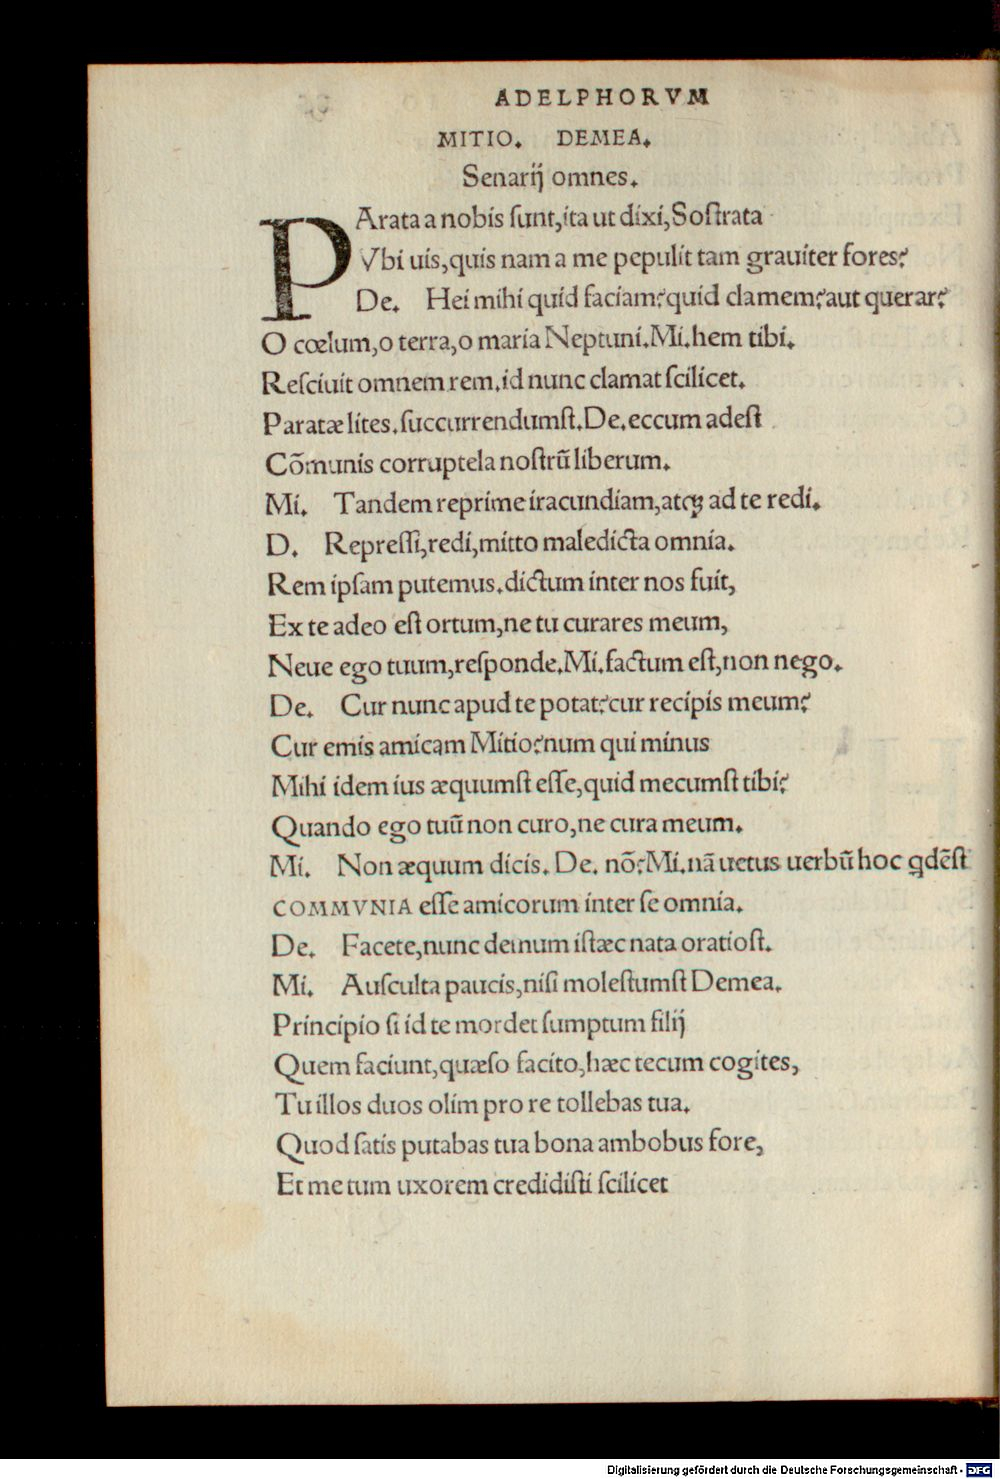 ADELPHORVM
MITIO. DEMEA.
Senarij omnes.
PArata a nobis ſunt,ita ut dixi,Soſtrata
Vbi uis,quis nam a me pepulit tam grauiter fores?
De. Hei mihi quid faciam?quid clamem?aut querar?
O cœlum,o terra,o maria Neptuni.Mi.hem tibi.
Reſciuit omnem rem.id nunc clamat ſcilicet.
Paratæ lites.ſuccurrendumſt.De.eccum adeſt
Cõmunis corruptela noſtrũ liberum.
Mi. Tandem reprime iracundiam,atqꝫ ad te redi.
D. Repreſſi,redi,mitto maledicta omnia.
Rem ipſam putemus.dictum inter nos fuit,
Ex te adeo eſt ortum,ne tu curares meum,
Neue ego tuum,reſponde.Mi.factum eſt,non nego.
De. Cur nunc apud te potat?cur recipis meum?
Cur emis amicam Mitio?num qui minus
Mihi idem ius æquumſt eſſe,quid mecumſt tibi?
Quando ego tuũ non curo,ne cura meum.
Mi. Non æquum dicis. De. nõ?Mi.nã uetus uerbũ hoc qdẽſt
COMMVNIA eſſe amicorum inter ſe omnia.
De. Facete,nunc demum iſtæc nata oratioſt.
Mi. Auſculta paucis,niſi moleſtumſt Demea.
Principio ſi id te mordet ſumptum filij
Quem faciunt,quæſo facito,hæc tecum cogites,
Tu illos duos olim pro re tollebas tua.
Quod ſatis putabas tua bona ambobus fore,
Et me tum uxorem credidiſti ſcilicet
Digitalisierung gefördert durch die Deutsche Forschungsgemeinschaft - DFG